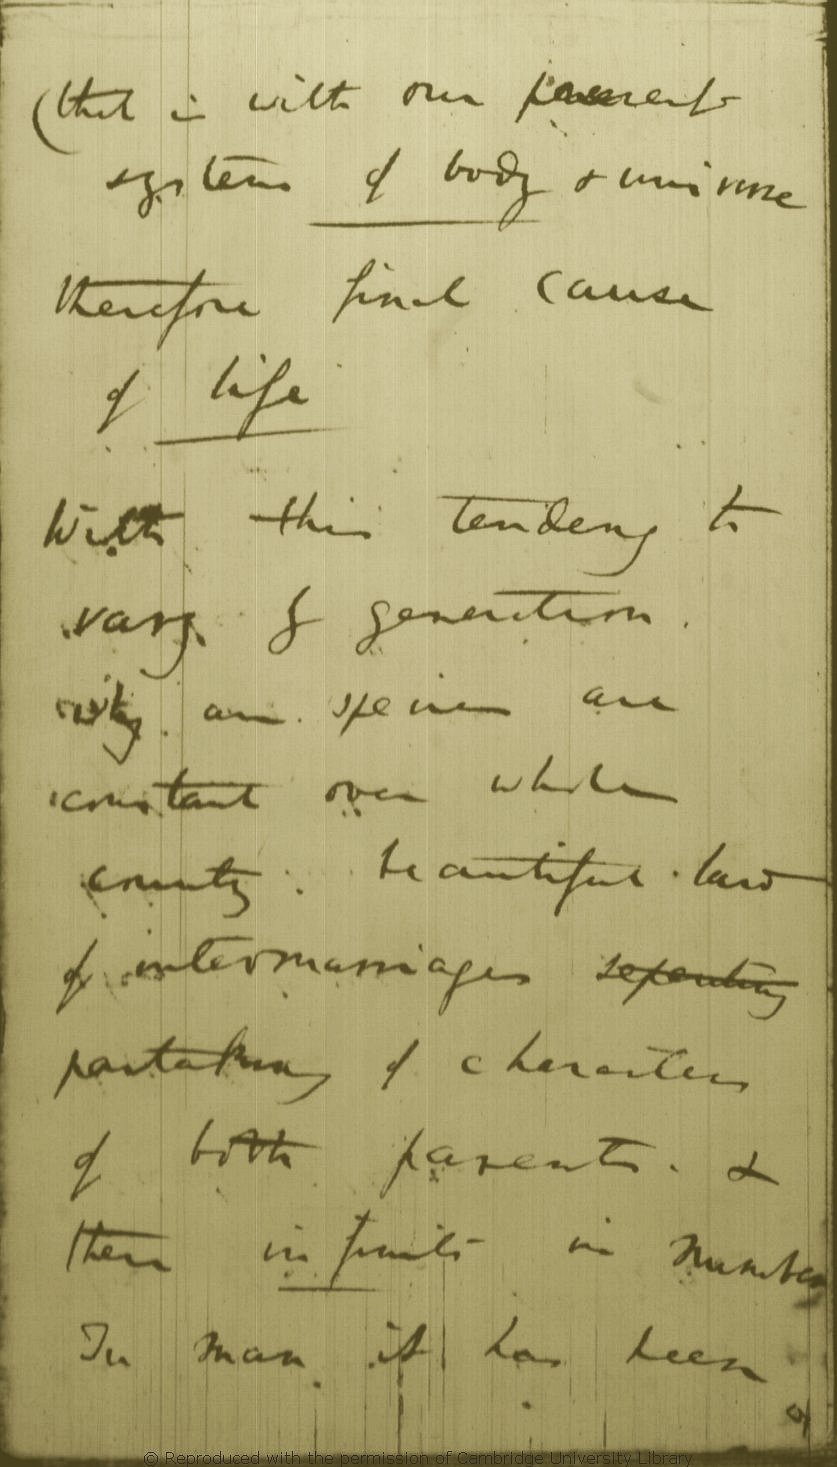 (that is with our present
systems of body & universe
therefore final cause
of life
With this tendency to
vary & generation.
why are species are
constant over whole
country. beautiful law
of intermarriages
partaking of characters
of both parents. &
then infinite in number
In man it has been
© Reproduced with the permission of Cambridge University Library